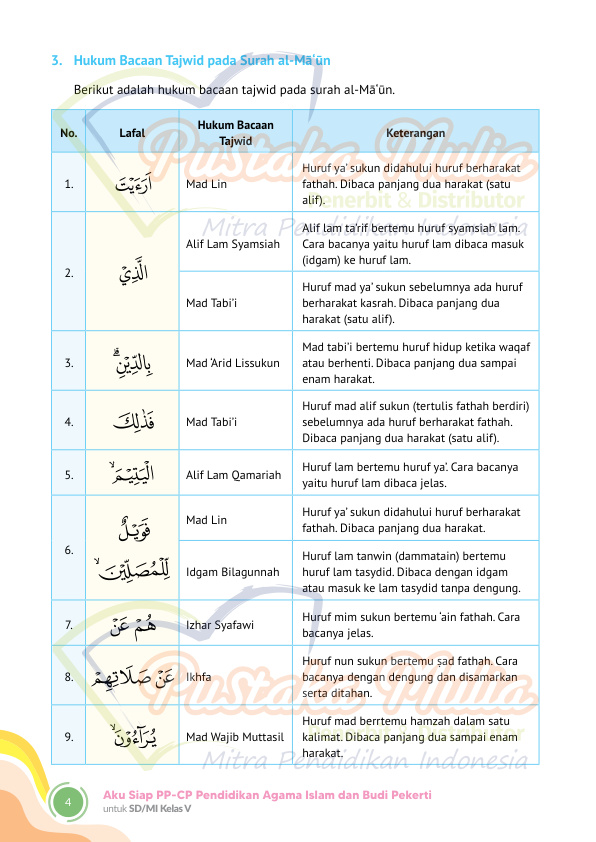 3. Hukum Bacaan Tajwid pada Surah al-Mā‘ūn
Berikut adalah hukum bacaan tajwid pada surah al-Mā‘ūn.
No.
Lafal
Hukum Bacaan
Tajwid
Keterangan
1.
اَرَءَيْتَ
Mad Lin
Huruf ya’ sukun didahului huruf berharakat
fathah. Dibaca panjang dua harakat (satu
alif).
2.
الَّذِيْ
Alif Lam Syamsiah
Alif lam ta’rif bertemu huruf syamsiah lam.
Cara bacanya yaitu huruf lam dibaca masuk
(idgam) ke huruf lam.
Mad Tabi’i
Huruf mad ya’ sukun sebelumnya ada huruf
berharakat kasrah. Dibaca panjang dua
harakat (satu alif).
3.
بِالدِّيْنِۗ
Mad ‘Arid Lissukun
Mad tabi’i bertemu huruf hidup ketika waqaf
atau berhenti. Dibaca panjang dua sampai
enam harakat.
4.
فَذٰلِكَ
Mad Tabi’i
Huruf mad alif sukun (tertulis fathah berdiri)
sebelumnya ada huruf berharakat fathah.
Dibaca panjang dua harakat (satu alif).
5.
الْيَتِيْمَۙ
Alif Lam Qamariah
Huruf lam bertemu huruf ya’. Cara bacanya
yaitu huruf lam dibaca jelas.
6.
فَوَيْلٌ
لِّلْمُصَلِّيْنَۙ
Mad Lin
Huruf ya’ sukun didahului huruf berharakat
fathah. Dibaca panjang dua harakat.
Idgam Bilagunnah
Huruf lam tanwin (dammatain) bertemu
huruf lam tasydid. Dibaca dengan idgam
atau masuk ke lam tasydid tanpa dengung.
7.
هُمْ عَنْ
Izhar Syafawi
Huruf mim sukun bertemu ‘ain fathah. Cara
bacanya jelas.
8.
عَنْ صَلَاتِهِمْ
Ikhfa
Huruf nun sukun bertemu ṣad fathah. Cara
bacanya dengan dengung dan disamarkan
serta ditahan.
9.
يُرَاۤءُوْنَۙ
Mad Wajib Muttasil
Huruf mad berrtemu hamzah dalam satu
kalimat. Dibaca panjang dua sampai enam
harakat.
Pustaka Mulia
Penerbit & Distributor
Mitra Pendidikan Indonesia
Pustaka Mulia
Penerbit & Distributor
Mitra Pendidikan Indonesia
4
Aku Siap PP-CP Pendidikan Agama Islam dan Budi Pekerti
untuk SD/MI Kelas V